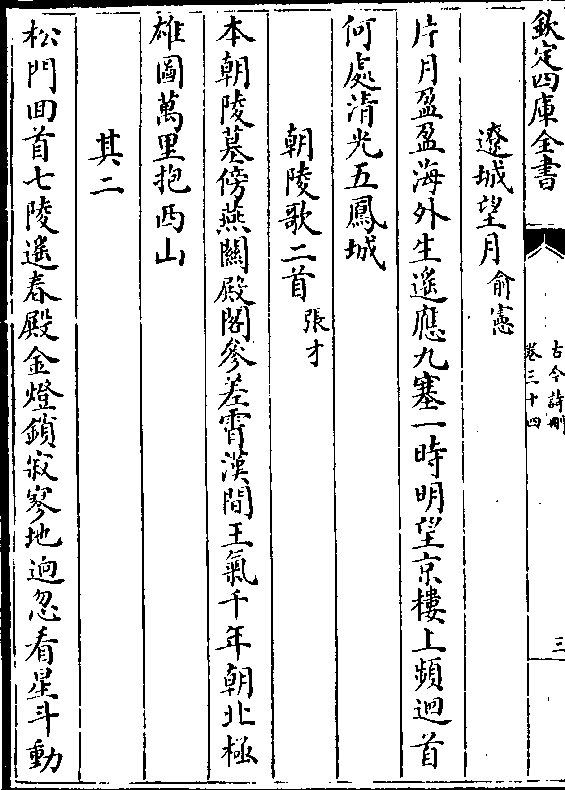 欽定四庫全書
古今詩刪
卷三十四
三
遼城望月俞憲
片月盈盈海外生遙應九塞一時明望京樓上頻迴首
何處清光五鳳城
朝陵歌二首張才
本朝陵墓傍燕關殿閣參差霄漢間王氣千年朝北極
雄圖萬里抱西山
其二
松門回首七陵遙春殿金燈鎖寂寥地迥忽看星斗動